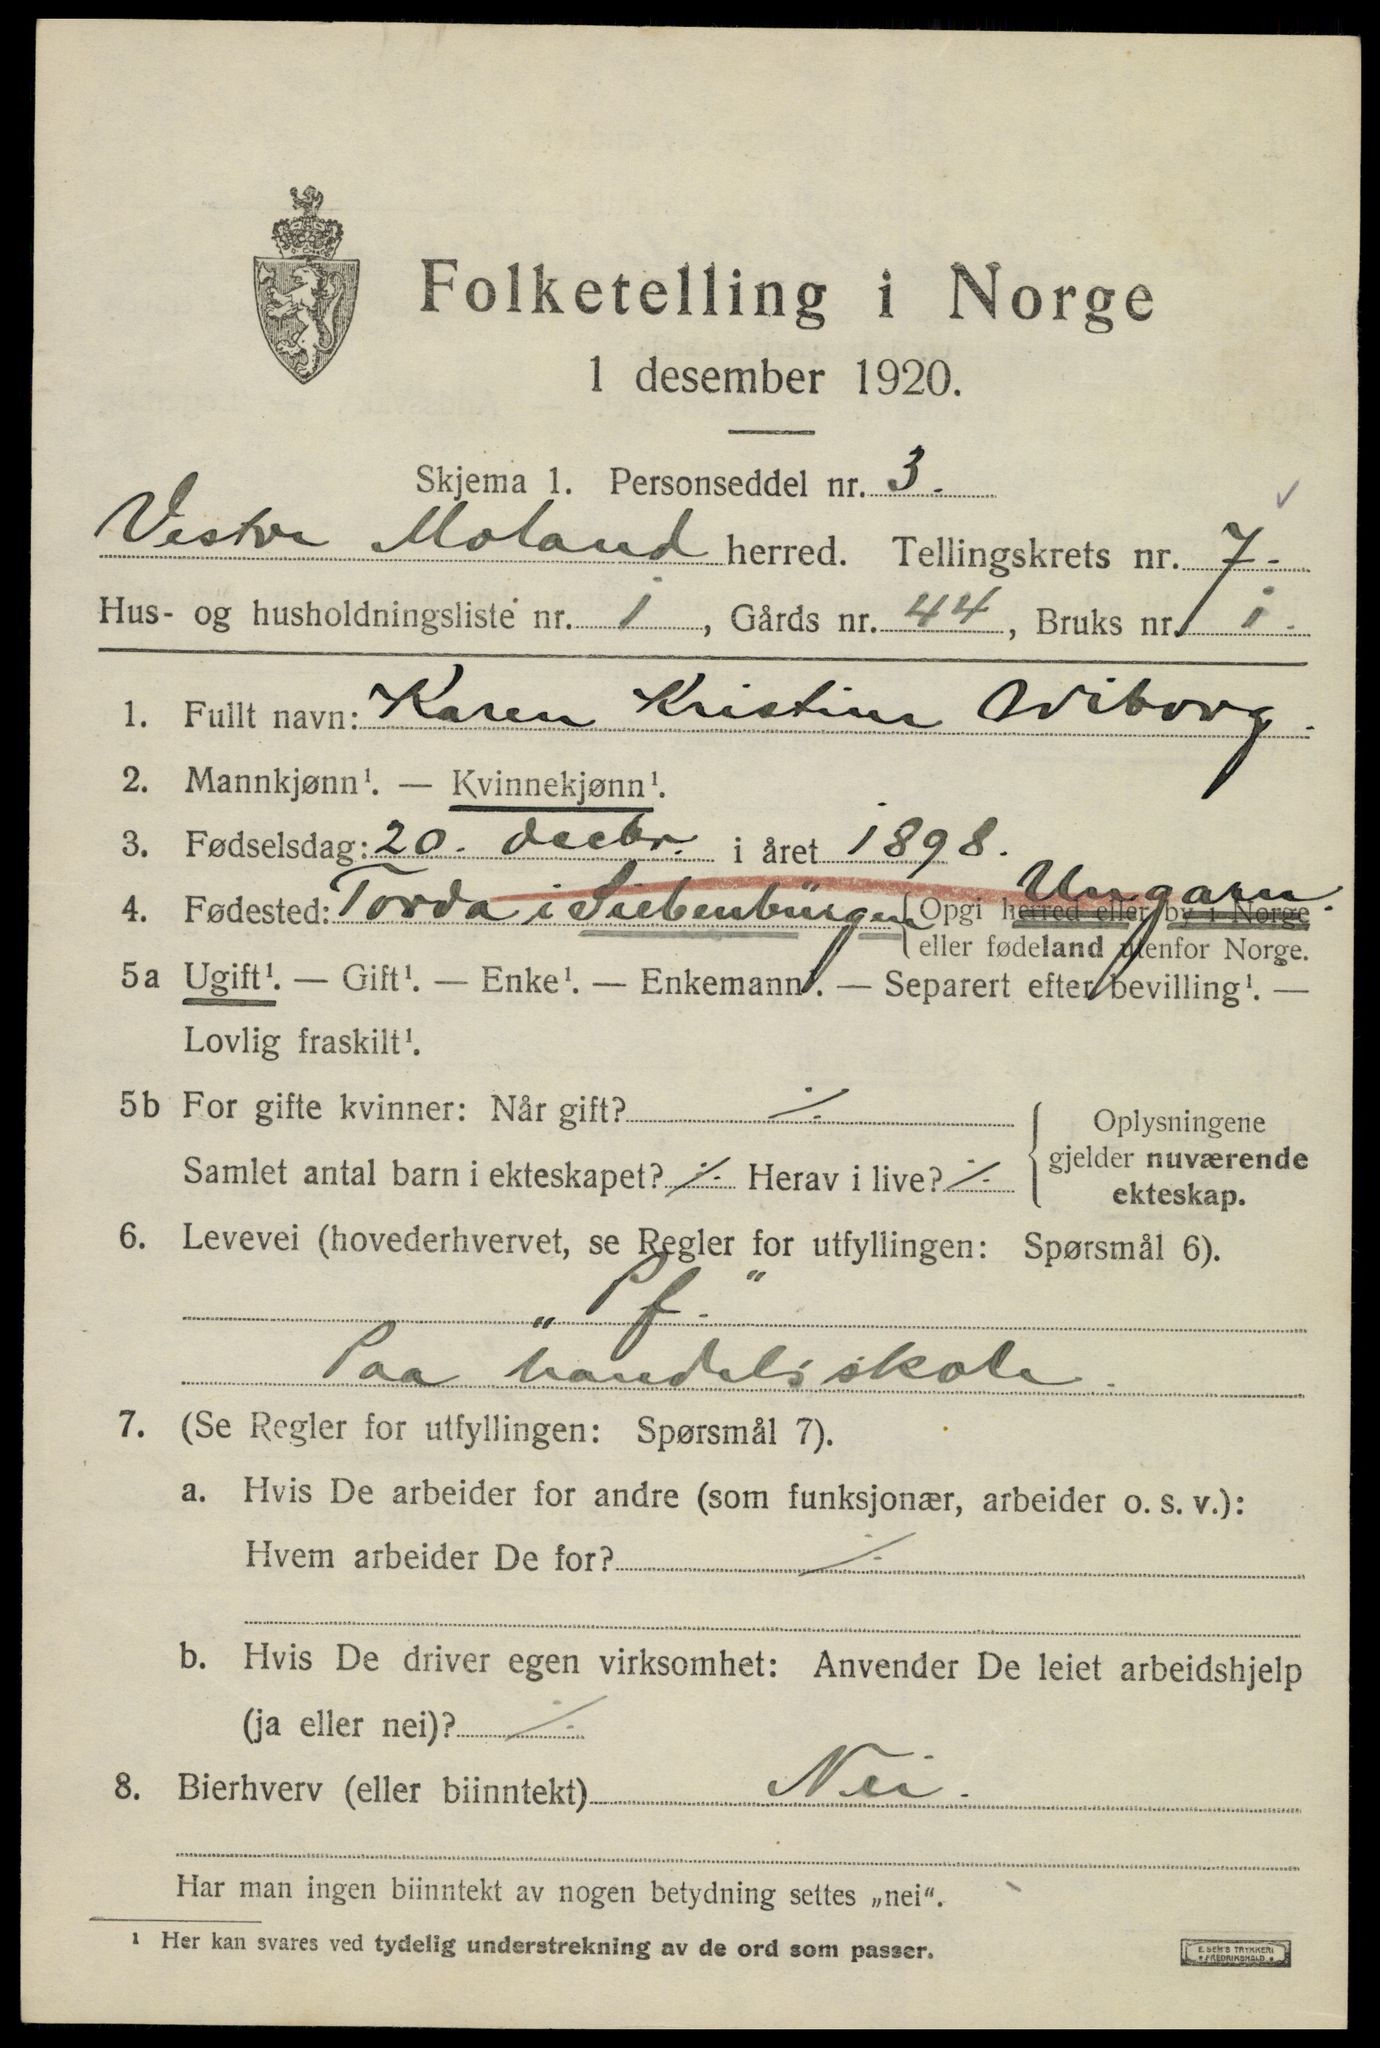 Folketelling i Norge
1 desember 1920.
Skjema 1. Personseddel nr. 3.
Vestre Moland herred. Tellingskrets nr. 7.
Hus- og husholdningsliste nr. 1, Gårds nr. 44, Bruks nr. 1.
1. Fullt navn: Karen Kristine Wiborg.
2. Mannkjønn¹. — Kvinnekjønn¹.
3. Fødselsdag: 20. decbr. i året 1898.
4. Fødested: Torda i Siebenbürgen Ungarn. {Opgi herred eller by i Norge
eller fødeland utenfor Norge.
5a Ugift¹. — Gift¹. — Enke¹. — Enkemann¹. — Separert efter bevilling¹. —
Lovlig fraskilt¹.
5b For gifte kvinner: Når gift? ⁒
Samlet antal barn i ekteskapet? ⁒ Herav i live? ⁒
{ Oplysningene
gjelder nuværende
ekteskap.
6. Levevei (hovederhvervet, se Regler for utfyllingen: Spørsmål 6).
„Pf.“
Paa handelsskole.
7. (Se Regler for utfyllingen: Spørsmål 7).
a. Hvis De arbeider for andre (som funksjonær, arbeider o. s. v.):
Hvem arbeider De for? ⁒
b. Hvis De driver egen virksomhet: Anvender De leiet arbeidshjelp
(ja eller nei)? ⁒
8. Bierhverv (eller biinntekt) Nei.
Har man ingen biinntekt av nogen betydning settes „nei“.
¹ Her kan svares ved tydelig understrekning av de ord som passer.
E. SEM'S TRYKKERI
FREDRIKSHALD